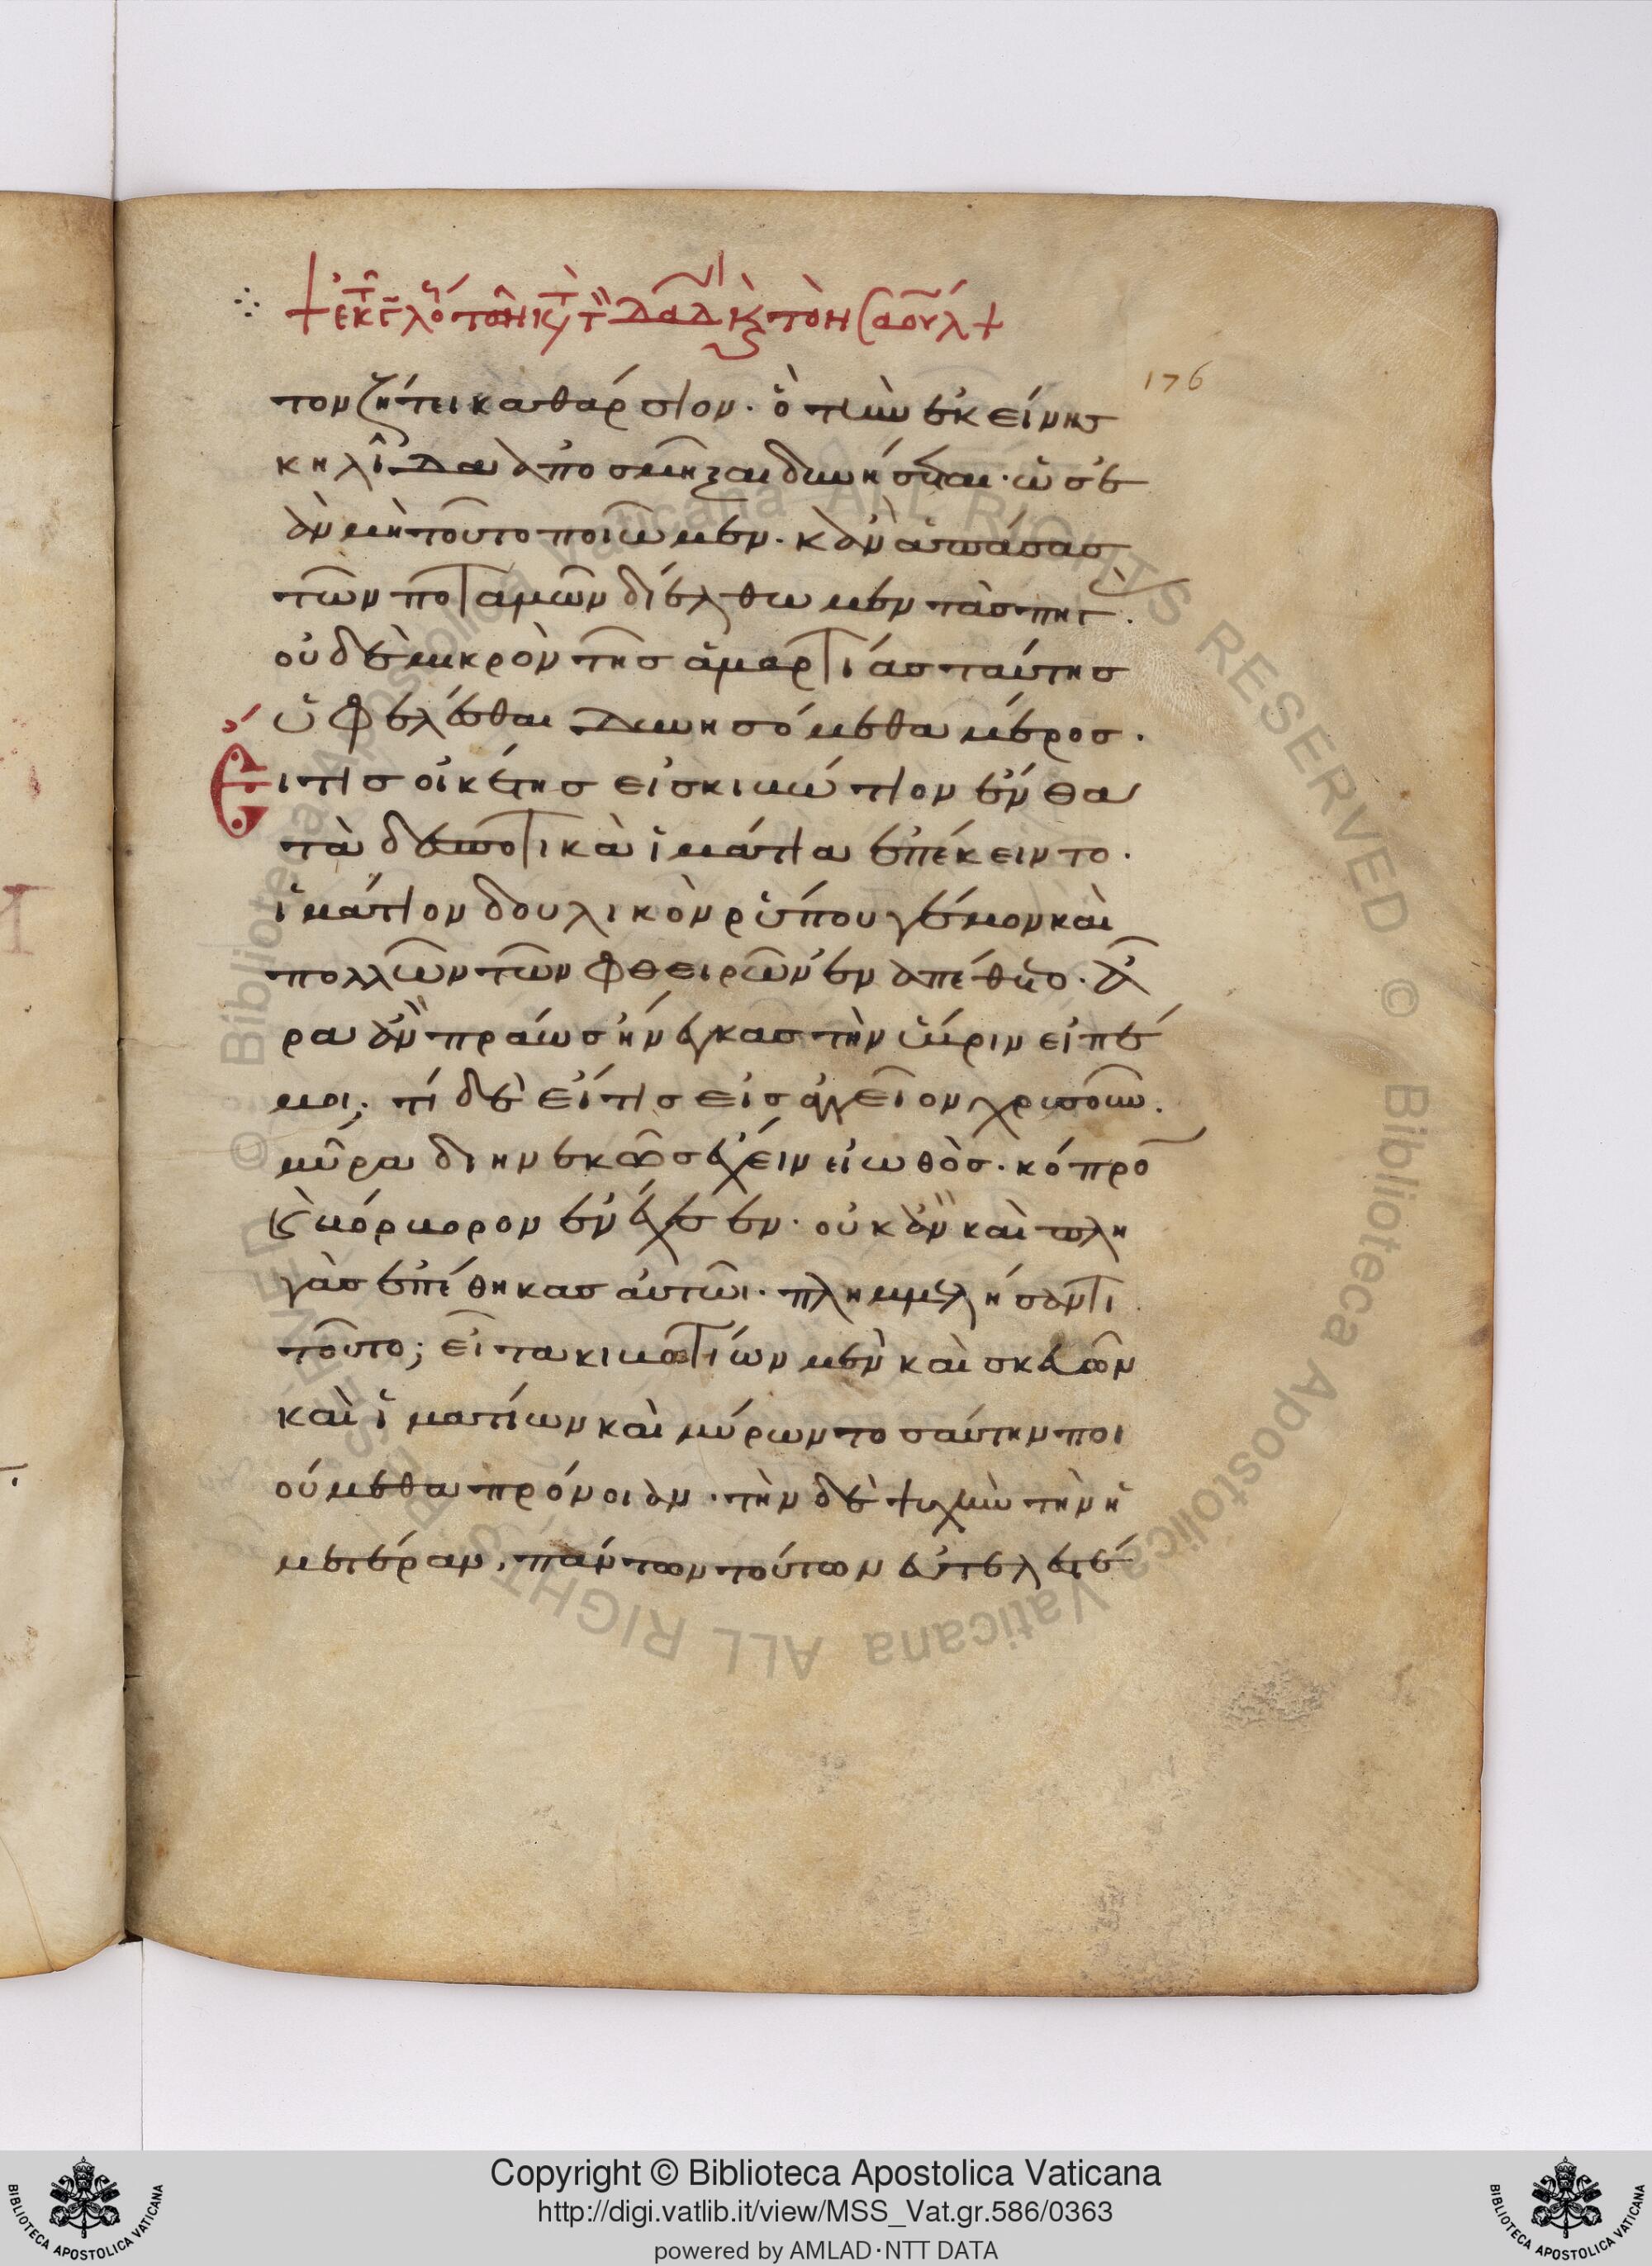 + ἐκ τ λό τῶν κ τ Δαδ κ τὸν Σαούλ +
176
τον ζήτει καθάρσιον. ὃ τὴν ἐκείνης
κηλῖδα ἀποσμῆξαι δυνήσεται. ὡς ἐ
ὰν μὴ τοῦτο ποιῶμεν. κἂν ἁπάσας
τῶν ποταμῶν διέλθωμεν τὰς πηγ.
οὐδὲ μικρὸν τῆς ἁμαρτίας ταύτης
ὑφελέσθαι δυνησόμεθα μέρος.
Εἴ τις οἰκέτης εἰς κιβώτιον ἔνθα
τὰ δεσποτικὰ ἱμάτια ἐπέκειντο.
ἱμάτιον δουλικὸν ῥύπου γέμον καὶ
πολλῶν τῶν φθειρῶν ἐναπέθετο. ἆ
ρα ἂν πράως ἤνεγκας τὴν ὕβριν εἰπέ
μοι; τί δὲ εἴ τις εἰς ἀγγεῖον χρυσοῦν.
μύρα διηνεκῶς ἔχειν εἰωθὸς. κόπρο
κ βόρβορον ἐνέχεεν. οὐκ ἂν καὶ πλη
γὰς ἐπέθηκας αὐτῶι. πλημμελήσαντι
τοῦτο; εἶτα κιβωτίων μὲν καὶ σκευῶν
καὶ ἱματίων καὶ μύρων τοσαύτην ποι
ούμεθα πρόνοιαν. τὴν δὲ ψυχὴν τὴν ἡ
μετέραν, πάντων τούτων εὐτελεστέ
Copyright © Biblioteca Apostolica Vaticana
http://digi.vatlib.it/view/MSS_Vat.gr.586/0363
powered by AMLAD·NTT DATA
BIBLIOTECA APOSTOLICA VATICANA
BIBLIOTECA APOSTOLICA VATICANA
© Biblioteca Apostolica Vaticana ALL RIGHTS RESERVED
© Biblioteca Apostolica Vaticana ALL RIGHTS RESERVED